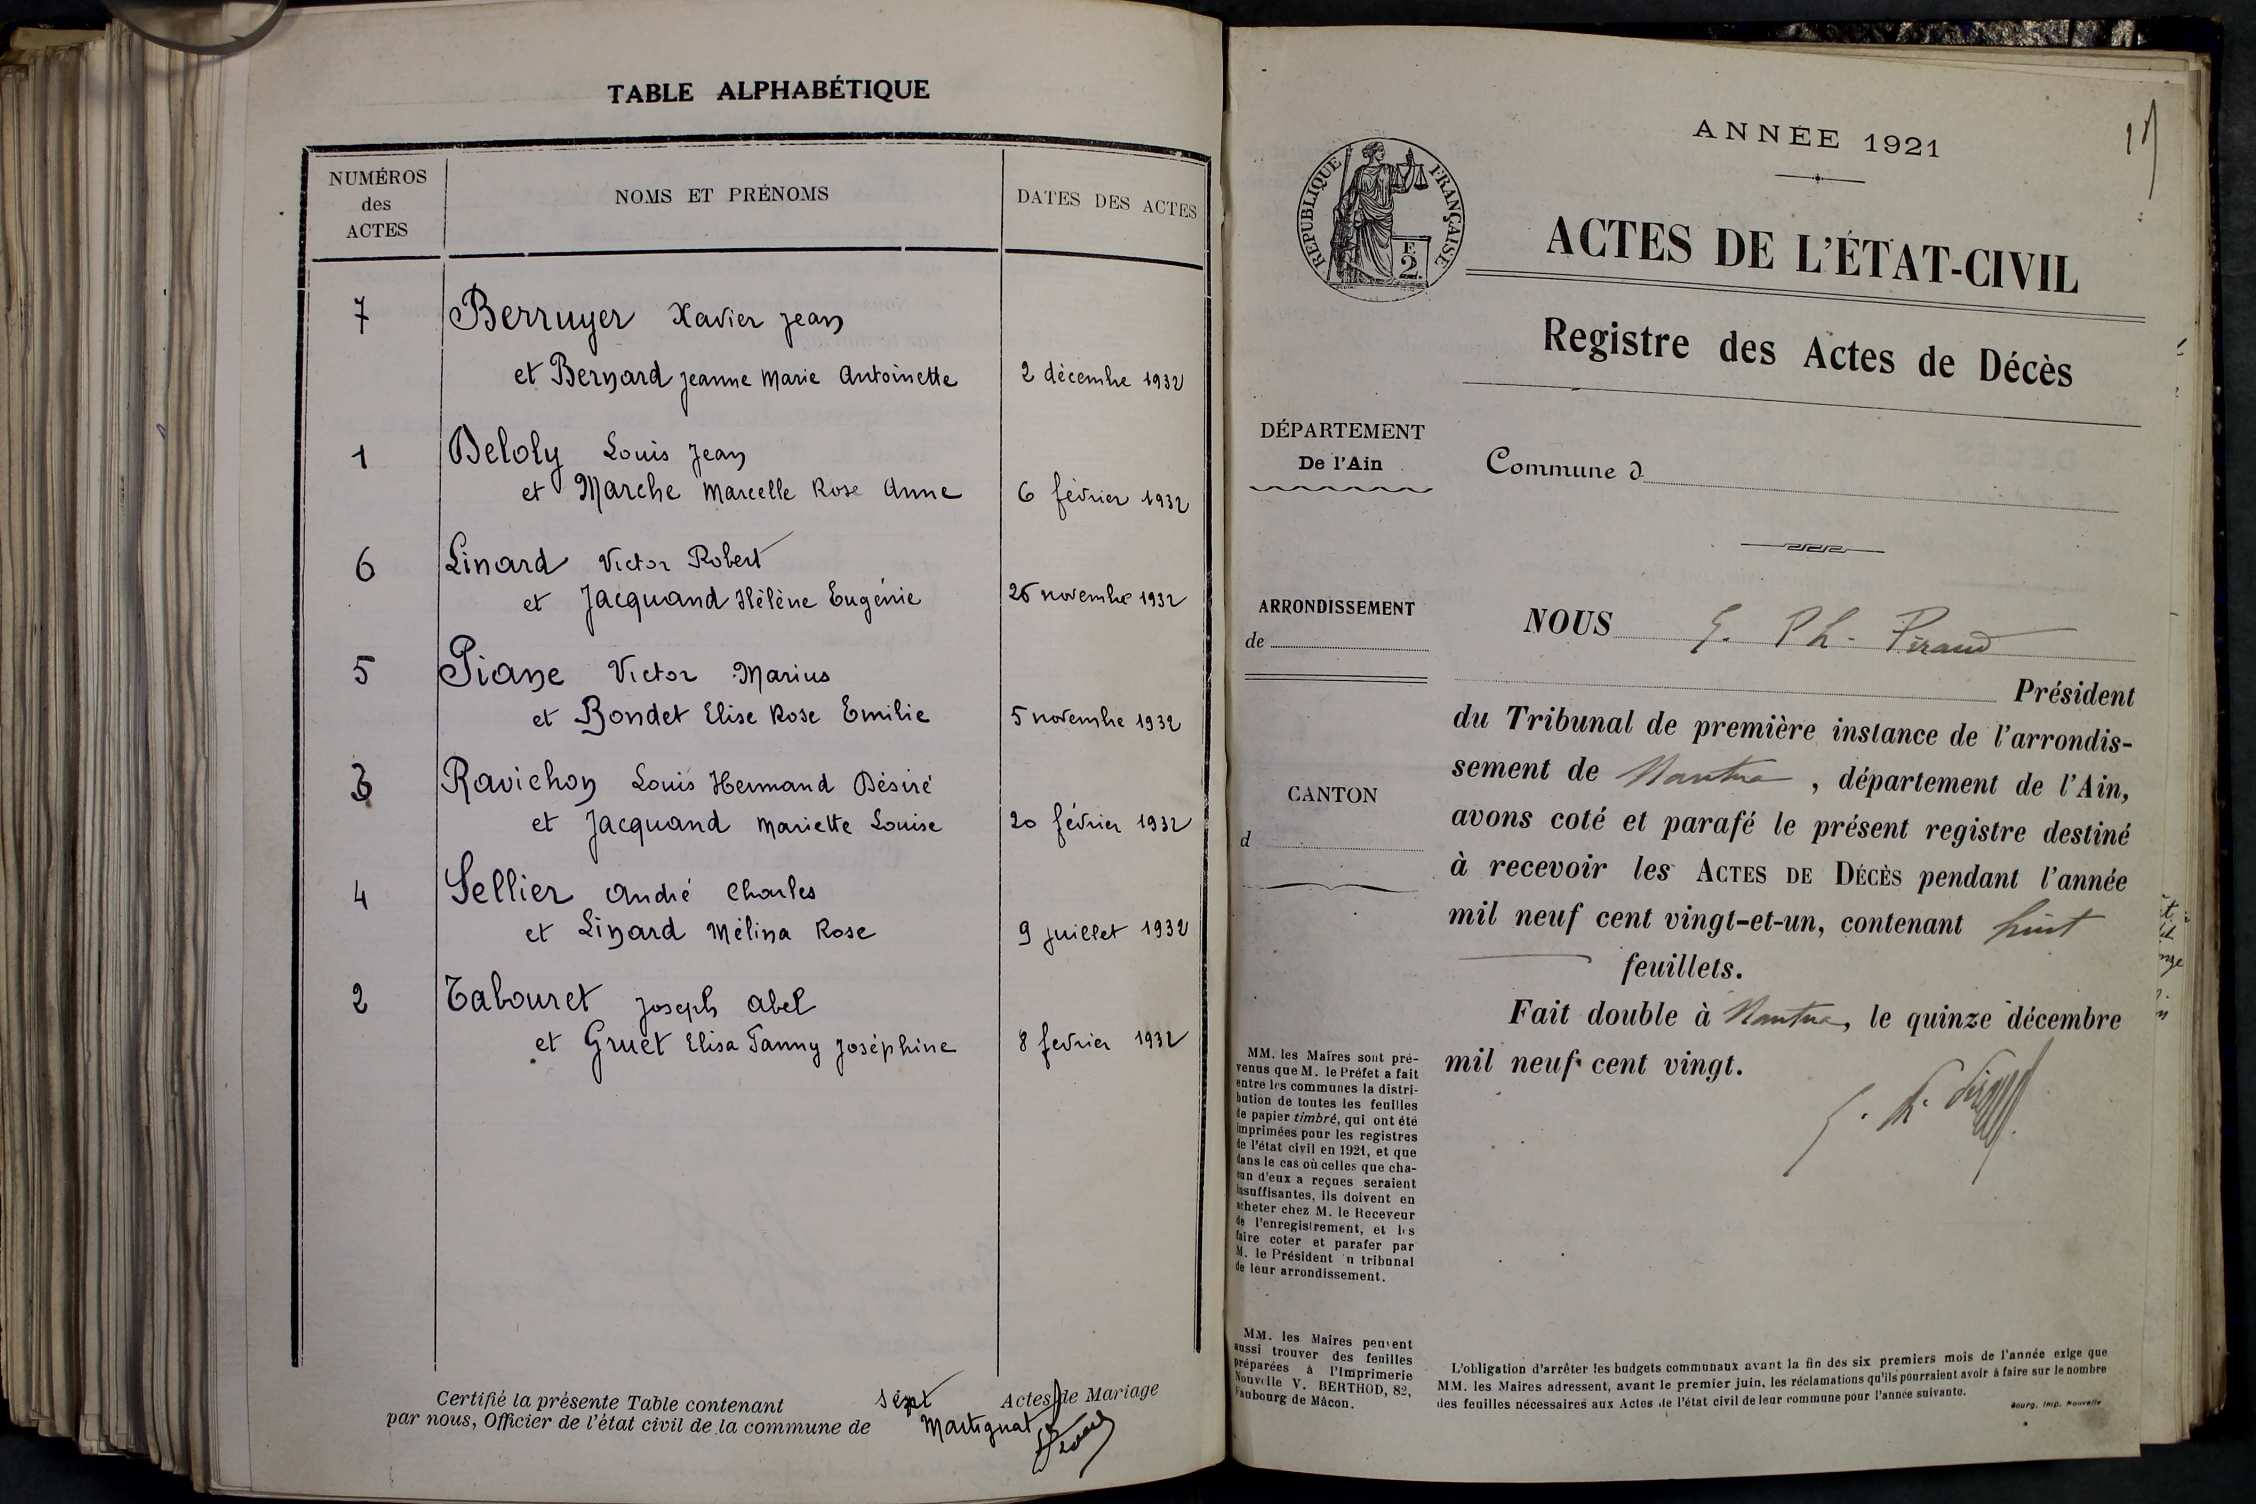 TABLE ALPHABÉTIQUE
NUMÉROS
des
ACTES
NOMS ET PRÉNOMS
DATES DES ACTES
7 Berruyer Xavier Jean
et Bernard Jeanne Marie Antoinette 2 décembre 1932
1 Beloly Louis Jean
et Marche Marcelle Rose Anne 6 février 1932
6 Linard Victor Robert
et Jacquand Hélène Eugénie 26 novembre 1932
5 Piane Victor Marius
et Bondet Elise Rose Emilie 5 novembre 1932
3 Ravichon Louis Hermand Désiré
et Jacquand Mariette Louise 20 février 1932
4 Sellier André Charles
et Linard Mélina Rose 9 juillet 1932
2 Tabouret Joseph Abel
et Gruet Elisa Fanny Joséphine 8 fevrier 1932
Certifié la présente Table contenant sept Actes de Mariage
par nous, Officier de l'état civil de la commune de Martignat
ANNÉE 1921
RÉPUBLIQUE FRANÇAISE
F
2
ACTES DE L'ÉTAT-CIVIL
Registre des Actes de Décès
DÉPARTEMENT
De l'Ain
Commune d
ARRONDISSEMENT
de
CANTON
d
MM. les Maires sont pré-
venus que M. le Préfet a fait
entre les communes la distri-
bution de toutes les feuilles
de papier timbré, qui ont été
imprimées pour les registres
de l'état civil en 1921, et que
dans le cas où celles que cha-
cun d'eux a reçues seraient
insuffisantes, ils doivent en
acheter chez M. le Receveur
de l'enregistrement, et les
faire coter et parafer par
M. le Président u tribunal
de leur arrondissement.
MM. les Maires peuvent
aussi trouver des feuilles
préparées à l'Imprimerie
Nouvelle V. BERTHOD, 82,
Faubourg de Mâcon.
NOUS G. Ph. Péraud
Président
du Tribunal de première instance de l'arrondis-
sement de Nantua, département de l'Ain,
avons coté et parafé le présent registre destiné
à recevoir les ACTES DE DÉCÈS pendant l'année
mil neuf cent vingt-et-un, contenant huit
feuillets.
Fait double à Nantua, le quinze décembre
mil neuf cent vingt.
L'obligation d'arrêter les budgets communaux avant la fin des six premiers mois de l'année exige que
MM. les Maires adressent, avant le premier juin, les réclamations qu'ils pourraient avoir à faire sur le nombre
des feuilles nécessaires aux Actes de l'état civil de leur commune pour l'année suivante.
Bourg, Imp. Nouvelle